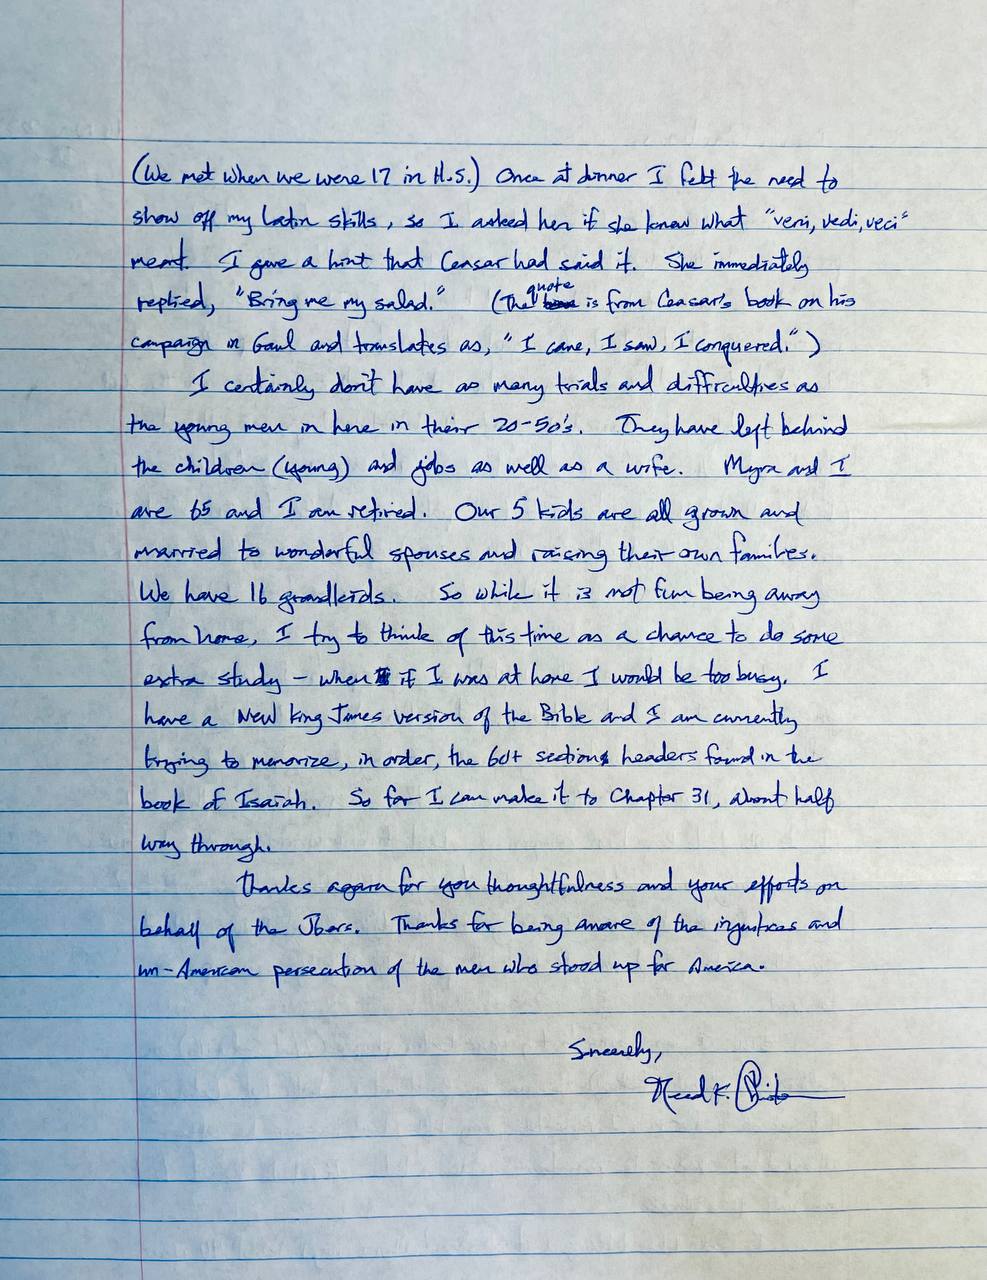 (We met when we were 17 in H.S.) Once at dinner I felt the need to
show off my Latin skills, so I asked her if she knew what "veni, vedi, veci"
meant. I gave a hint that Ceasar had said it. She immediately
replied, "Bring me my salad." (The quote is from Ceasar's book on his
campaign in Gaul and translates as, "I came, I saw, I conquered.")
I certainly don't have as many trials and difficulties as
the young men in here in their 20-50's. They have left behind
the children (young) and jobs as well as a wife. Myra and I
are 65 and I am retired. Our 5 kids are all grown and
married to wonderful spouses and raising their own families.
We have 16 grandkids. So while it is not fun being away
from home, I try to think of this time as a chance to do some
extra study - when if I was at home I would be too busy. I
have a New King James version of the Bible and I am currently
trying to memorize, in order, the 60+ sections headers found in the
book of Isaiah. So far I can make it to Chapter 31, about half
way through.
Thanks again for you thoughtfulness and your efforts on
behalf of the J6ers. Thanks for being aware of the injustices and
un-American persecution of the men who stood up for America.
Sincerely,
K.